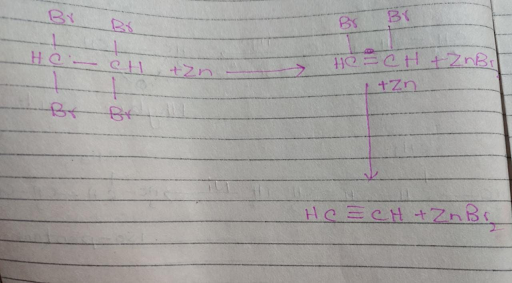 Br Br Br Br
HC — CH +Zn ⟶ HC = CH + ZnBr
Br Br +Zn
HC ≡ CH + ZnBr₂